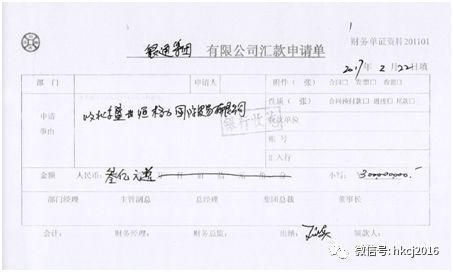 银通集团 有限公司汇款申请单
财务单证资料201101
2017年2月22日填
部门 申请人 附件(张) 合同□ 发票□ 收据□
性质(张) 合同预付款□ 进度□ 尾款□
申请事由
收款单位
银行收讫
账号
汇入行
金额 人民币: 叁亿元整 小写: 300000000.
部门经理 主管副总 总经理 集团总裁 董事长
会计: 财务经理: 财务总监: 出纳: 领款人:
微信号: hkcj2016